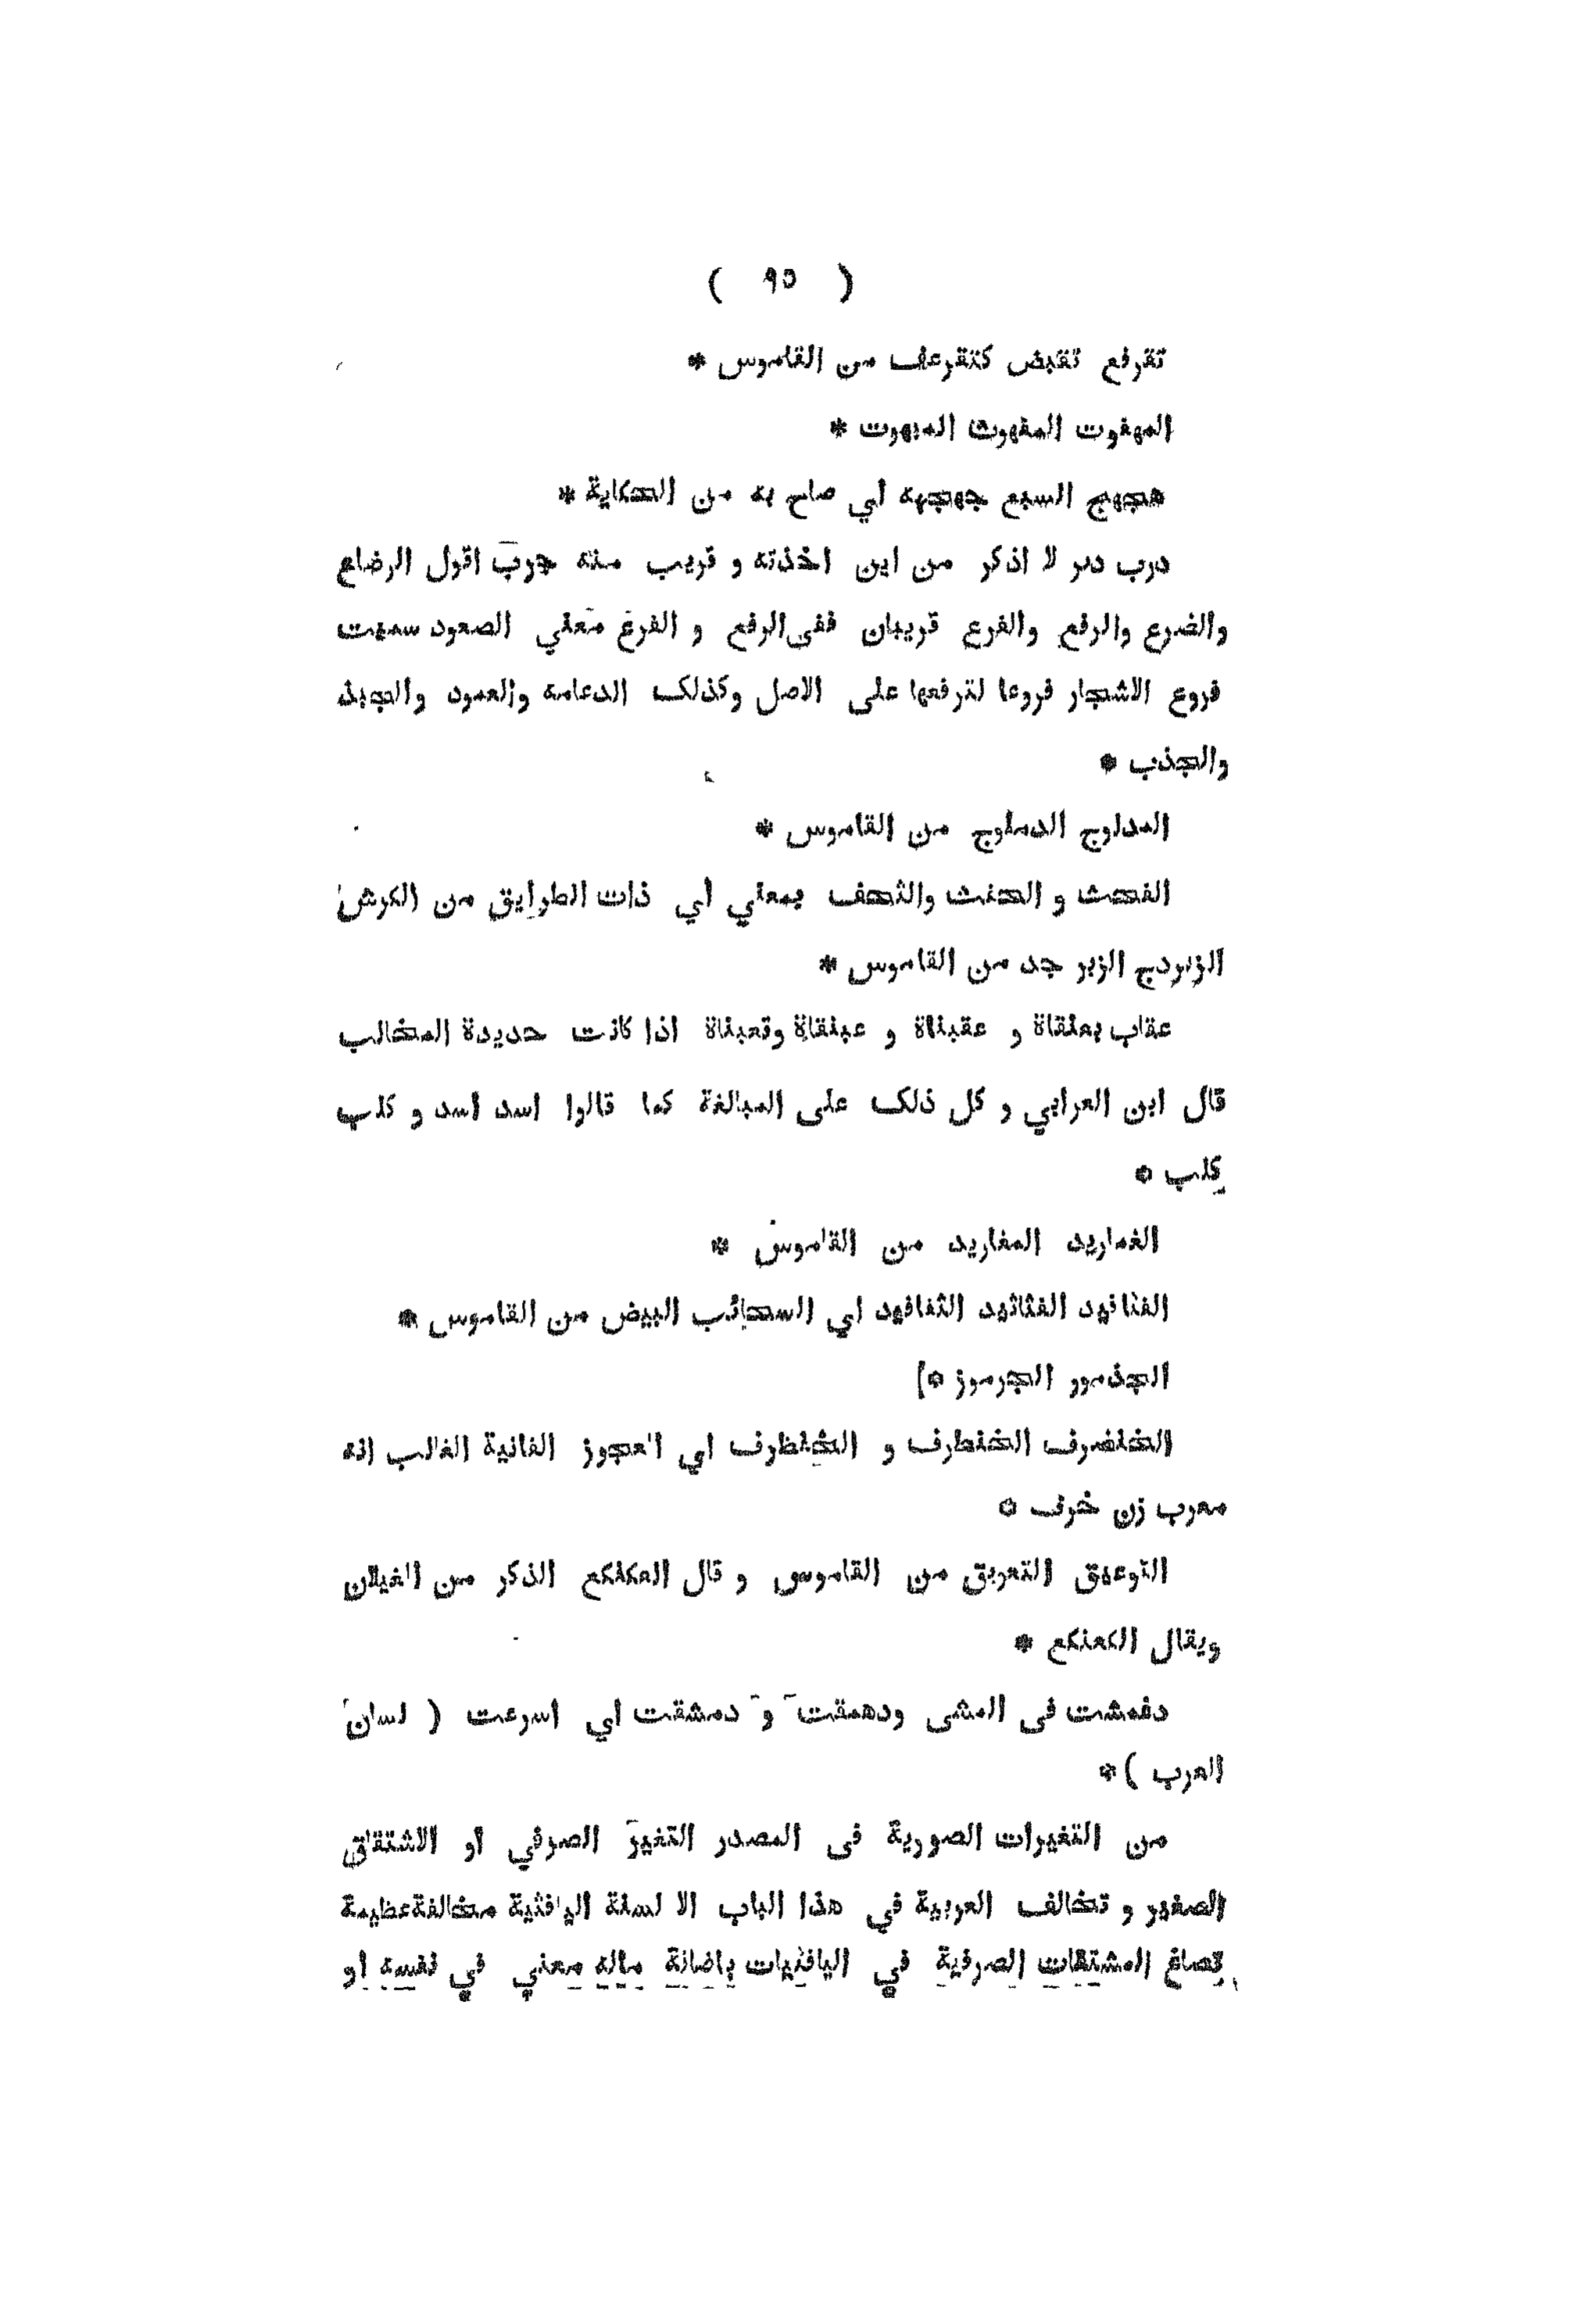 ( ٩٥ )
تقرفع تقبض كتقرعف من القاموس *
المهفوت المفهوت المبهوت *
هجهج السبع جهجهه أي صاح به من الحكاية *
درب دبر لا اذكر من اين اخذته و قريب منه جرب اقول الرضاع
والضرع والرفع والفرع قريبان ففى الرفع و الفرع معني الصعود سميت
فروع الاشجار فروعا لترفعها على الاصل وكذلك الدعامه والعمود والجبذ
والجذب *
المدلوج الدملوج من القاموس *
الفحث و الحفث والثحف بمعني أي ذات الطرايق من الكرش
الزبردج الزبر جد من القاموس *
عقاب بعنقاة و عقبناة و عبنقاة وقعبناة اذا كانت حديدة المخالب
قال ابن العرابي و كل ذلك على المبالغة كما قالوا اسد أسد و كلب
كلب *
الغماريد المغاريد من القاموس *
الفنافيد الفثاثيد الثفافيد اي السحائب البيض من القاموس *
الجذمور الجرموز *]
الخنضرف الخنطرف و الخنظرف اي العجوز الفانية الغالب انه
معرب زن خرف *
التوعيق التعويق من القاموس و قال العكنكع الذكر من الغيلان
ويقال الكعنكع *
دفمشت فى المشى ودهمقت و دمشقت أي اسرعت ( لسان
العرب ) *
من التغيرات الصورية فى المصدر التغير الصرفي أو الاشتقاق
الصغير و تخالف العربية في هذا الباب الا لسنة اليافثية مخالفةعظيمة
تصاغ المشتقات الصرفية في اليافثيات باضافة ماله معني في نفسه أو